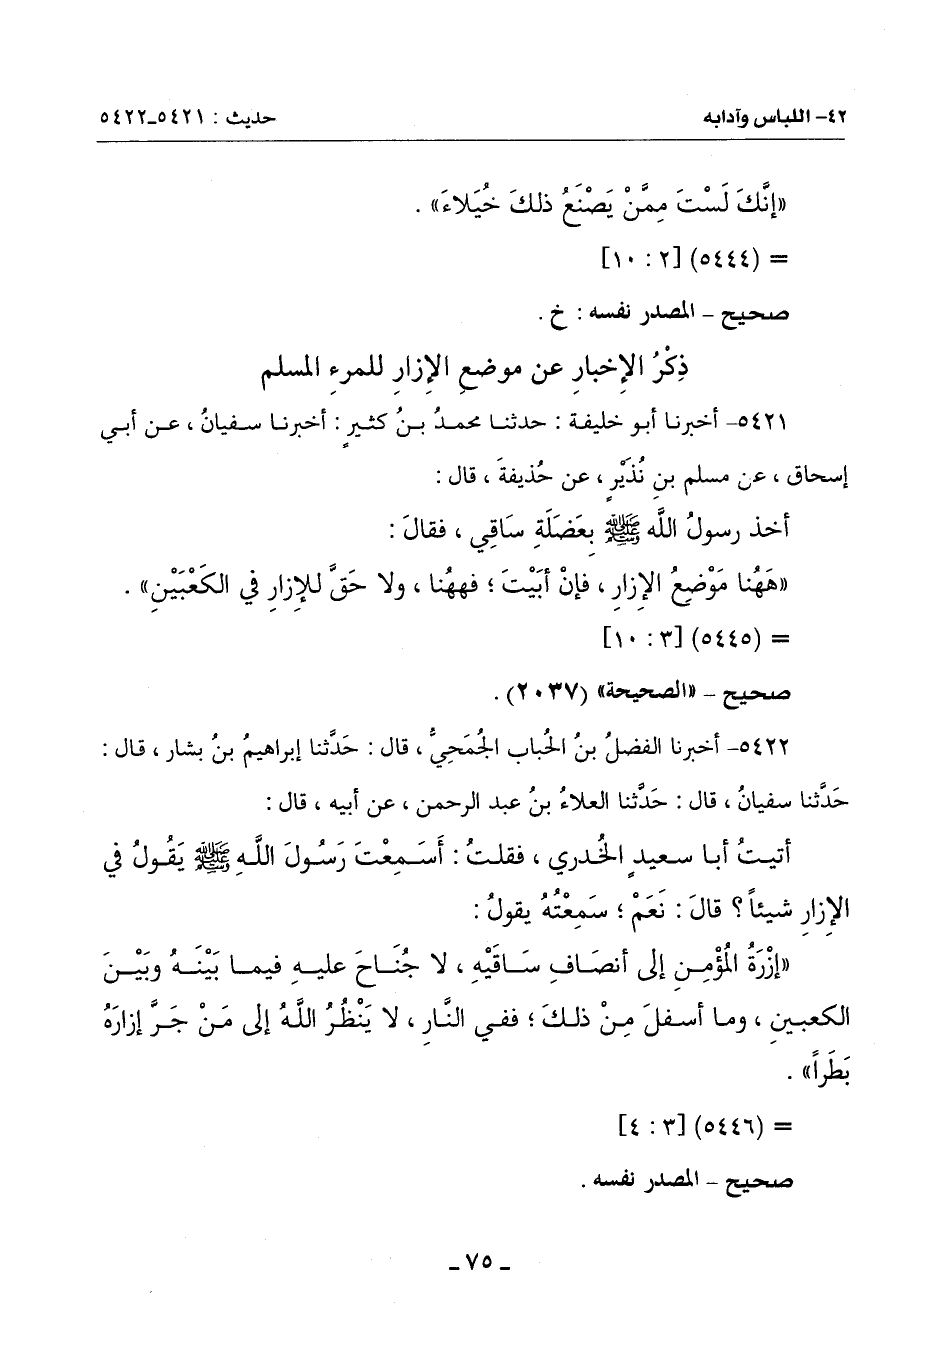 ٤٢- اللباس وآدابه حديث : ٥٤٢١ـ٥٤٢٢
«إنَّكَ لَسْتَ مِمَّنْ يَصْنَعُ ذلكَ خُيَلاءَ» .
= (٥٤٤٤) [٢ : ١٠]
صحيح – المصدر نفسه : خ .
ذِكْرُ الإخبارِ عن موضعِ الإزارِ للمرءِ المسلم
٥٤٢١– أخبرنا أبو خليفة : حدثنا محمدُ بنُ كثيرٍ : أخبرنا سفيانُ ، عن أبي
إسحاق ، عن مسلم بنِ نُذَيْرٍ ، عن حُذيفةَ ، قال :
أخذ رسولُ اللَّه ﷺ بِعَضَلَةِ سَاقِي ، فقالَ :
«هَهُنا مَوْضِعُ الإزارِ ، فإنْ أبَيْتَ ؛ فههُنا ، ولا حَقَّ للإزارِ في الكَعْبَيْنِ» .
= (٥٤٤٥) [٣ : ١٠]
صحيح – «الصحيحة» (٢٠٣٧) .
٥٤٢٢– أخبرنا الفضلُ بنُ الحُباب الجُمَحِيُّ ، قال : حَدَّثنا إبراهيمُ بنُ بشار ، قال :
حَدَّثنا سفيانُ ، قال : حَدَّثنا العلاءُ بنُ عبد الرحمن ، عن أبيه ، قال :
أتيتُ أبا سعيدٍ الخُدري ، فقلتُ : أَسَمِعْتَ رَسُولَ اللَّهِ ﷺ يَقُولُ في
الإزارِ شيئاً ؟ قالَ : نَعَمْ ؛ سَمِعْتُهُ يقولُ :
«إزْرَةُ المُؤْمِنِ إلى أنصَافِ سَاقَيْهِ ، لا جُنَاحَ عليهِ فيما بَيْنَهُ وبَيْنَ
الكعبينِ ، وما أسفلَ مِنْ ذلكَ ؛ ففي النَّارِ ، لا يَنْظُرُ اللَّهُ إلى مَنْ جَرَّ إزارَهُ
بَطَراً» .
= (٥٤٤٦) [٣ : ٤]
صحيح – المصدر نفسه .
ـ ٧٥ ـ